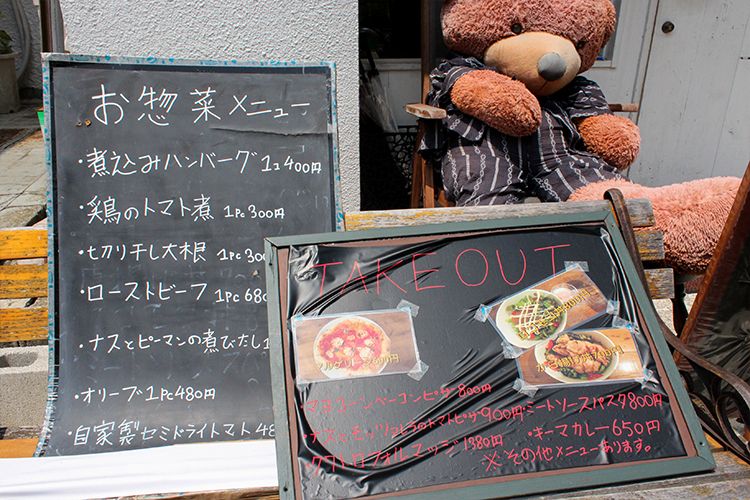 お惣菜メニュー
・煮込みハンバーグ 1コ 400円
・鶏のトマト煮 1pc 300円
・切り干し大根 1pc 300
・ローストビーフ 1pc 680
・ナスとピーマンの煮びたし 1
・オリーブ 1pc 480円
・自家製セミドライトマト 48
TAKE OUT
・マヨコーンベーコンピザ 800円
・ナスとモッツァレラのトマトピザ 900円
・ミートソースパスタ 800
クワトロフォルマッジ 1380円
・キーマカレー 650円
※その他メニューあります。